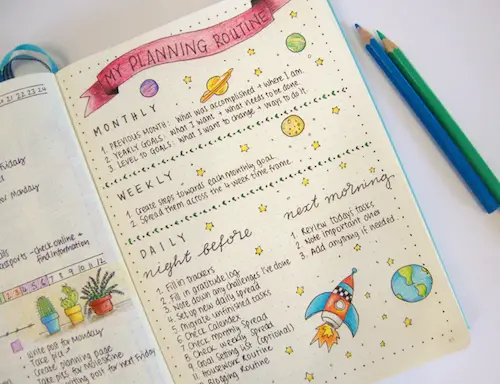 21 22 23 24
Friday
for Monday
- check online +
find information
7 8 9 10 11 12
Write post for Monday
Creating planning page
MY PLANNING ROUTINE
MONTHLY
1. PREVIOUS MONTH: What was accomplished + where I am.
2. YEARLY GOALS: What I want + what needs to be done.
3. LEVEL 10 GOALS: What I want to change + ways to do it.
WEEKLY
1. Create steps towards each monthly goal
2. Spread them across the 4 week time frame
DAILY
night before
1. Fill in trackers
2. Fill in gratitude log
3. Note down any challenges I've done
4. Set up new daily spread
5. Migrate unfinished tasks
6. Check Calendex
7. Check monthly Spread
8. Check weekly Spread
9. Goal Setting list (optional)
10. Housework Routine
11. Blogging Routine
next morning
1. Review todays tasks
2. Note important ones
3. Add anything if needed